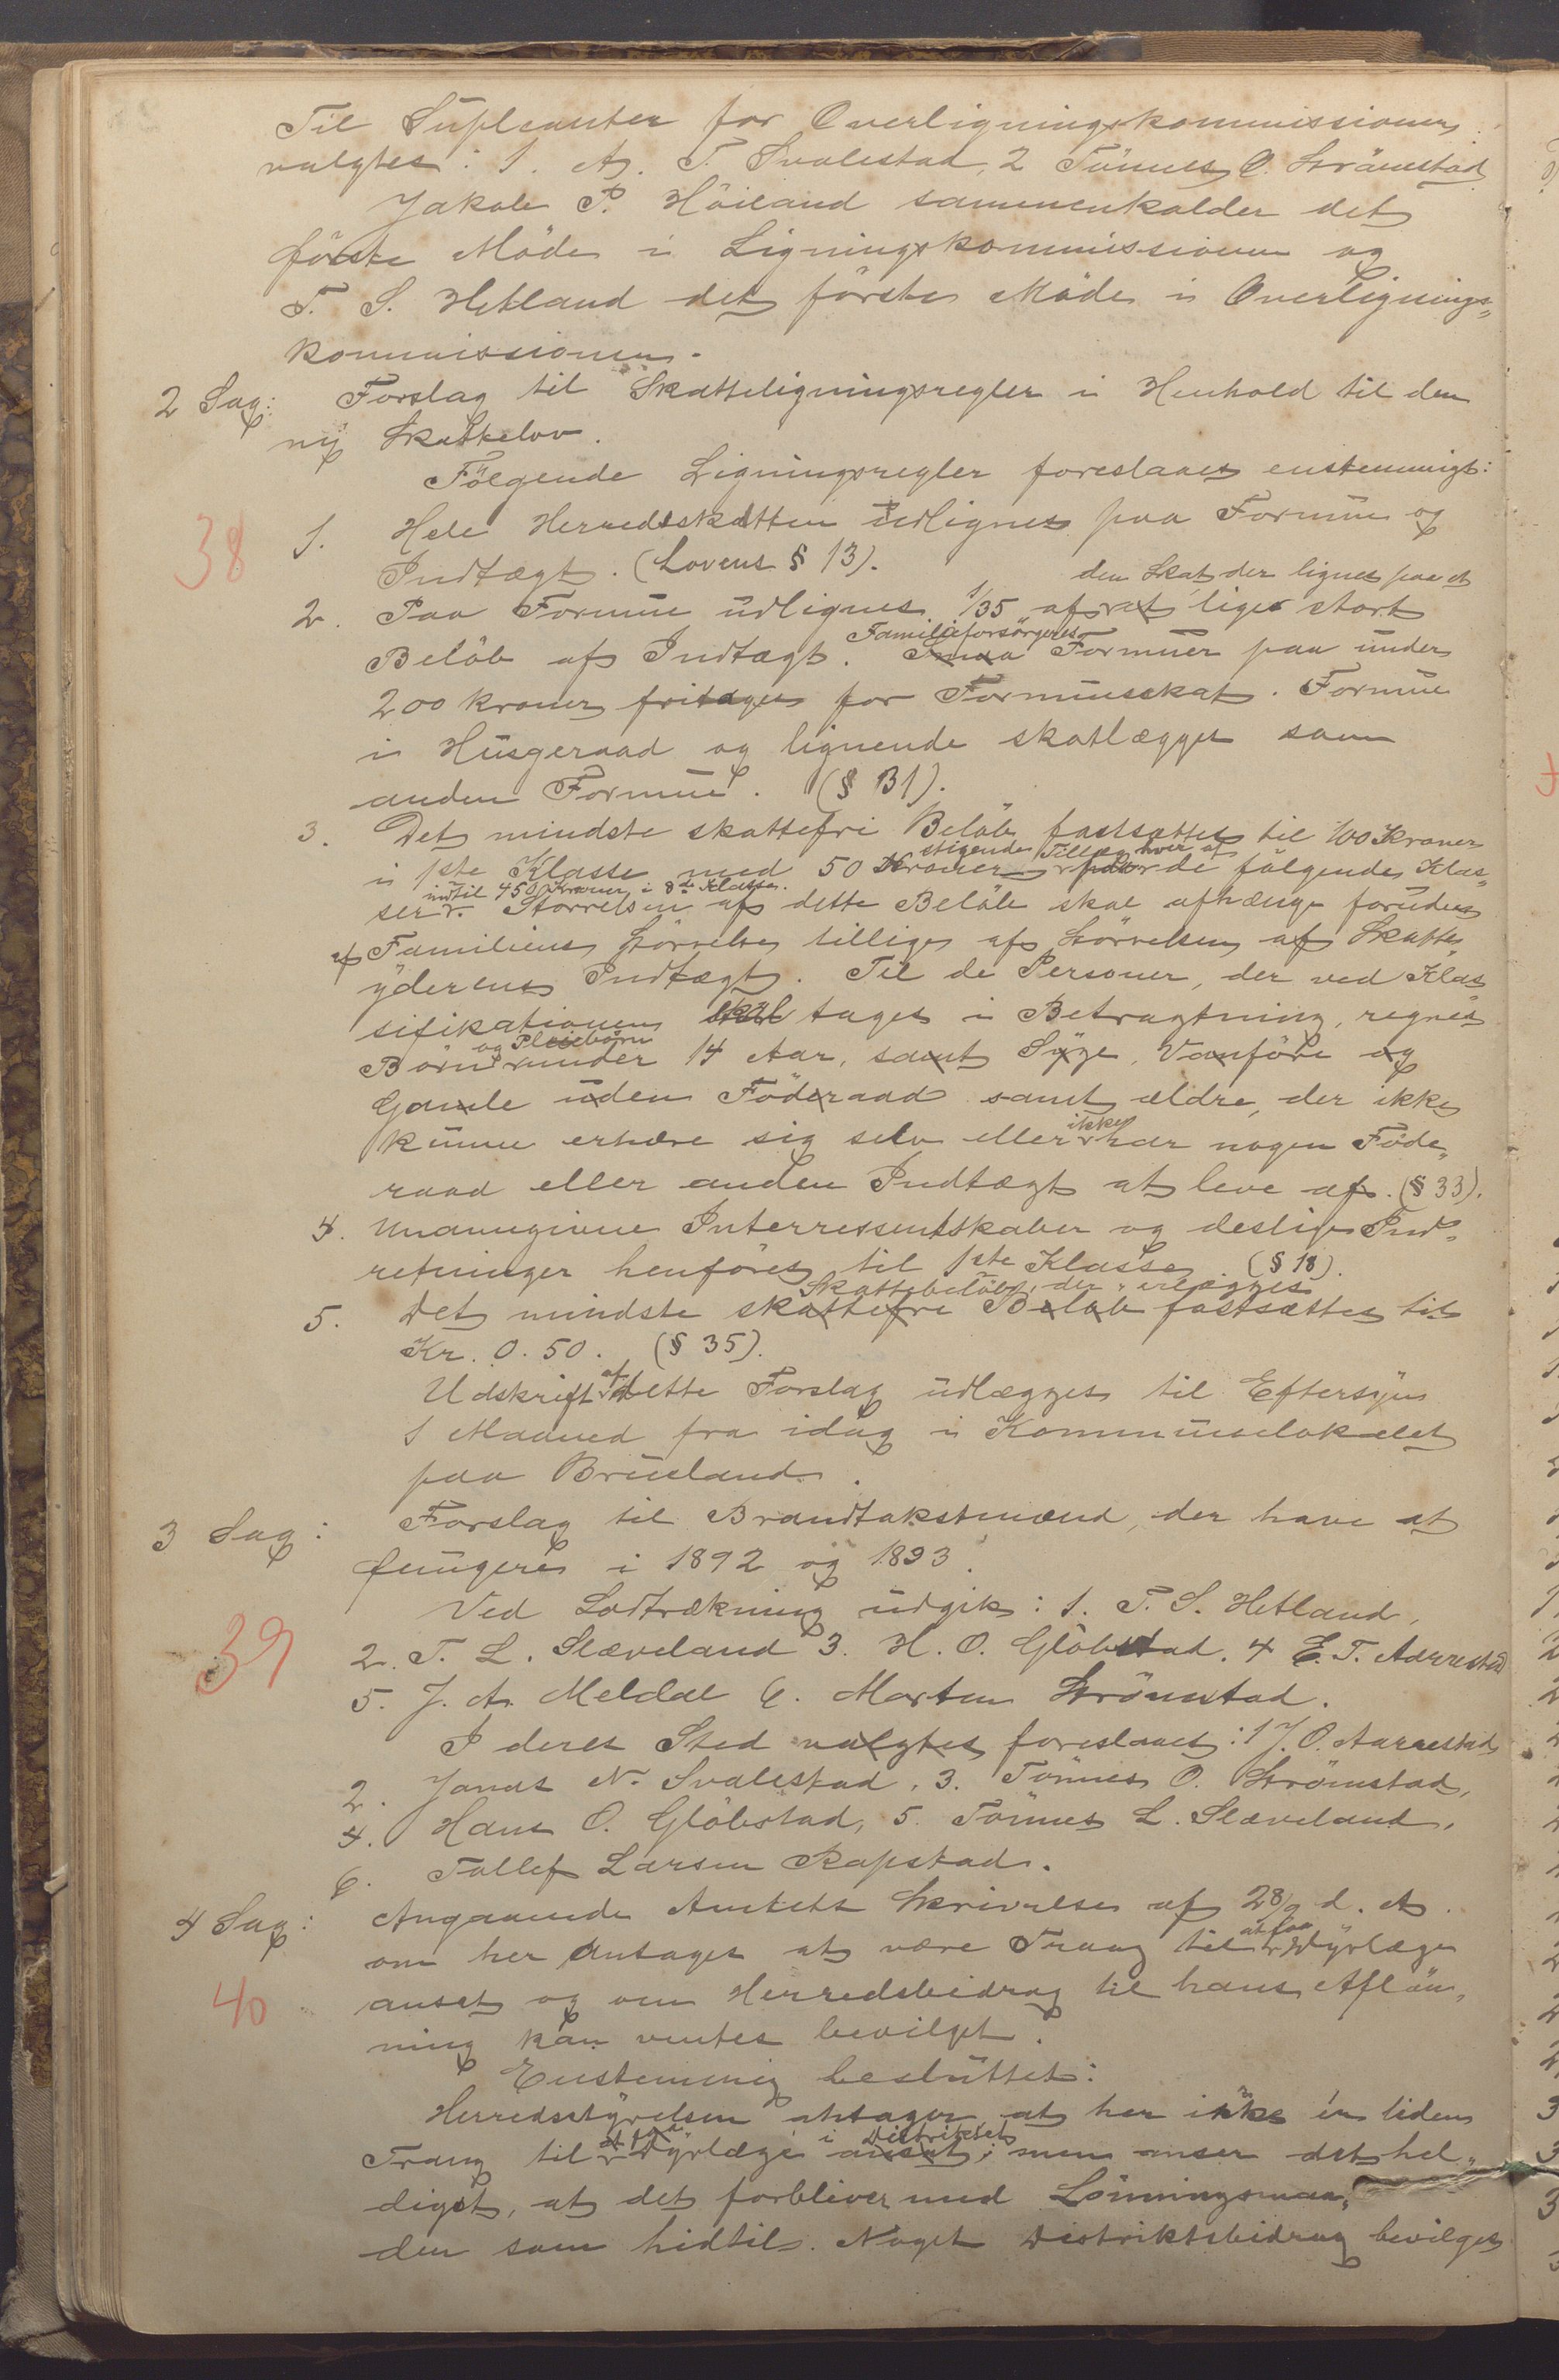 Til Supleanter for Overligningskommissionen
valgtes: 1. A. T. Svalestad, 2 Tönnes O. Strömstad
Jakob P. Höiland sammenkalder det
förste Möde i Ligningskommissionen og
T. S. Hetland det förste Möde i Overlignings„
kommissionen.
2 Sag: Forslag til Skatteligningsregler i Henhold til den
ny Skattelov.
Fölgende Ligningsregler foreslaaes enstemmigt:
38
1. Hele Herredsskatten udlignes paa Formue og
Indtægt. (Lovens § 13).
den Skat der lignes paa et
2. Paa Formue udlignes 1/35 af et lige stort
Familieforsörgeres
Belöb af Indtægt. Smaa Formuer paa under
200 kroner fritages for Formuesskat. Formue
i Husgeraad og lignende skatlægges som
anden Formue. (§ 31).
3. Det mindste skattefri Belöb fastsættes til 100 Kroner
stigende Tillæg hver af
i 1ste Klasse med 50 Kroner for de fölgende Klas„
indtil 450 Kroner i 8de Klasse.
ser. Störrelsen af dette Belöb skal afhænge foruden
af Familiens Störrelse tillige af Störrelsen af Skatte
yderens Indtægt. Til de Personer, der ved Klas
sifikationen skal tages i Betragtning, regnes
og Pleiebörn
Börn under 14 Aar, samt Syge, Vanföre og
Gamle uden Föderaad samt ældre, der ikke
ikke
kunne erhære sig selv eller har nogen Föde„
raad eller anden Indtægt at leve af. (§ 33).
4. Unavngivne Interressentskaber og deslige Ind„
retninger henföres til 1ste Klasse. (§ 18).
Skattebelöb, der erlægges
5. Det mindste skattefri Belöb fastsættes til
Kr. 0.50. (§ 35).
af
Udskrift dette Forslag udlægges til Eftersyn
1 Maaned fra idag i Kommunelokalet
paa Brueland.
3 Sag: Forslag til Brandtakstmænd, der have at
fungere i 1892 og 1893.
Ved Lodtrækning udgik: 1. T. S. Hetland,
39
2. T. L. Slæveland 3. H. O. Glöbstad. 4 E. T. Aarrestad
5. J. A. Meldal 6. Morten Strömstad.
I deres Sted valgtes foreslaaes: 1 J. O. Aarrestad
2. Jonas N. Svalestad, 3. Tönnes O. Strömstad,
4. Hans O. Glöbstad, 5. Tönnes L. Slæveland,
6. Tollef Larsen Rapstad.
4 Sag: Angaaende Amtets Skrivelse af 28/9 d. A.
at faa
om her antages at være Trang til Dyrlæge
40
ansat og om Herredsbidrag til hans Aflön„
ning kan ventes bevilget.
Enstemmig besluttet:
Herredsstyrelsen antager, at her ikke er liden
at faa i Distriktet
Trang til Dyrlæge ansat; men anser det hel„
digst, at det forbliver med Lönningsmaa„
den som hidtil. Noget Distriktsbidrag bevilges